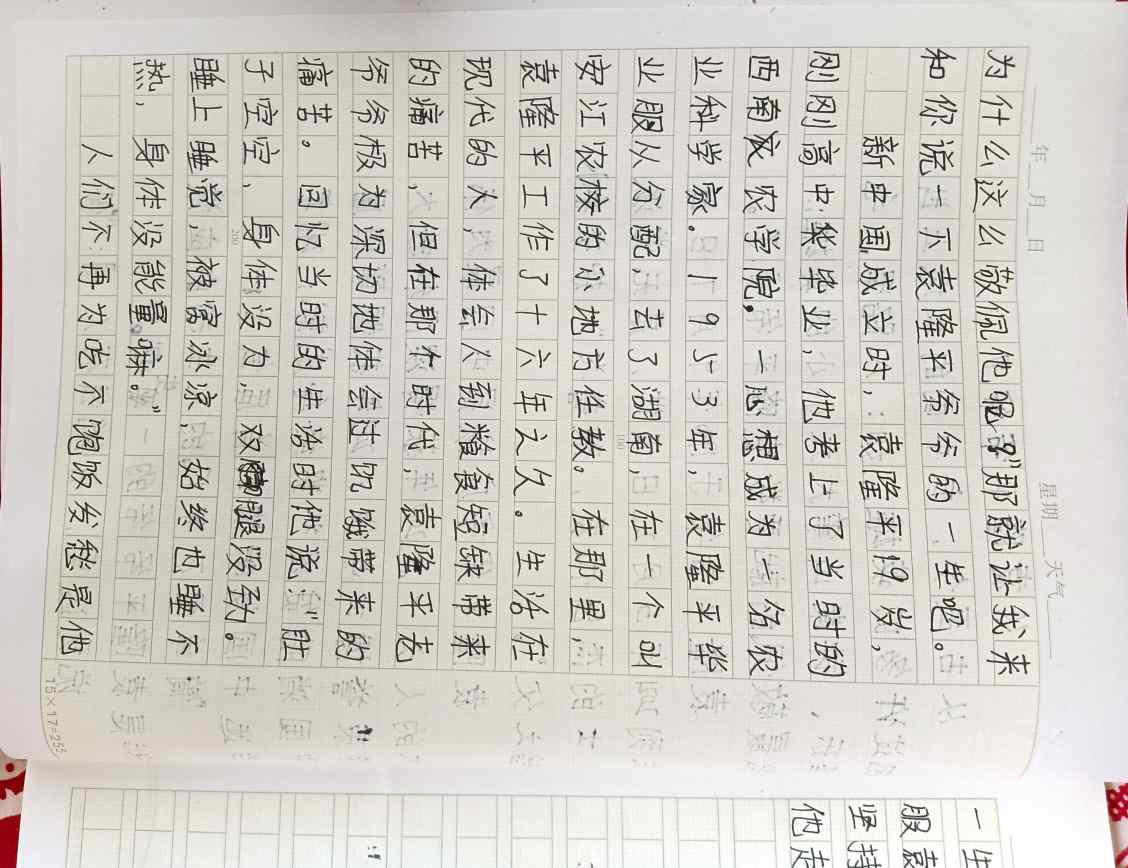 年 月 日 星期 天气
为什么这么敬佩他呢？那就让我来
和你说一下袁隆平爷爷的一生吧。
新中国成立时，袁隆平19岁，
刚刚高中毕业，他考上了当时的
西南农学院，一心想成为一名农
业科学家。1953年，袁隆平毕
业服从分配，去了湖南，在一个叫
安江农校的小地方任教。在那里，
袁隆平工作了十六年之久。生活在
现代的人，体会不到粮食短缺带来
的痛苦，但在那个时代，袁隆平老
爷爷极为深切地体会过饥饿带来的
痛苦。回忆当时的生活时他说："肚
子空空，身体没力，双腿没劲。
睡上睡觉，被窝冰凉，始终也睡不
热，身体没能量嘛。"
人们不再为吃不饱饭发愁是他
15×17=255
一生
服袁
坚持
他走